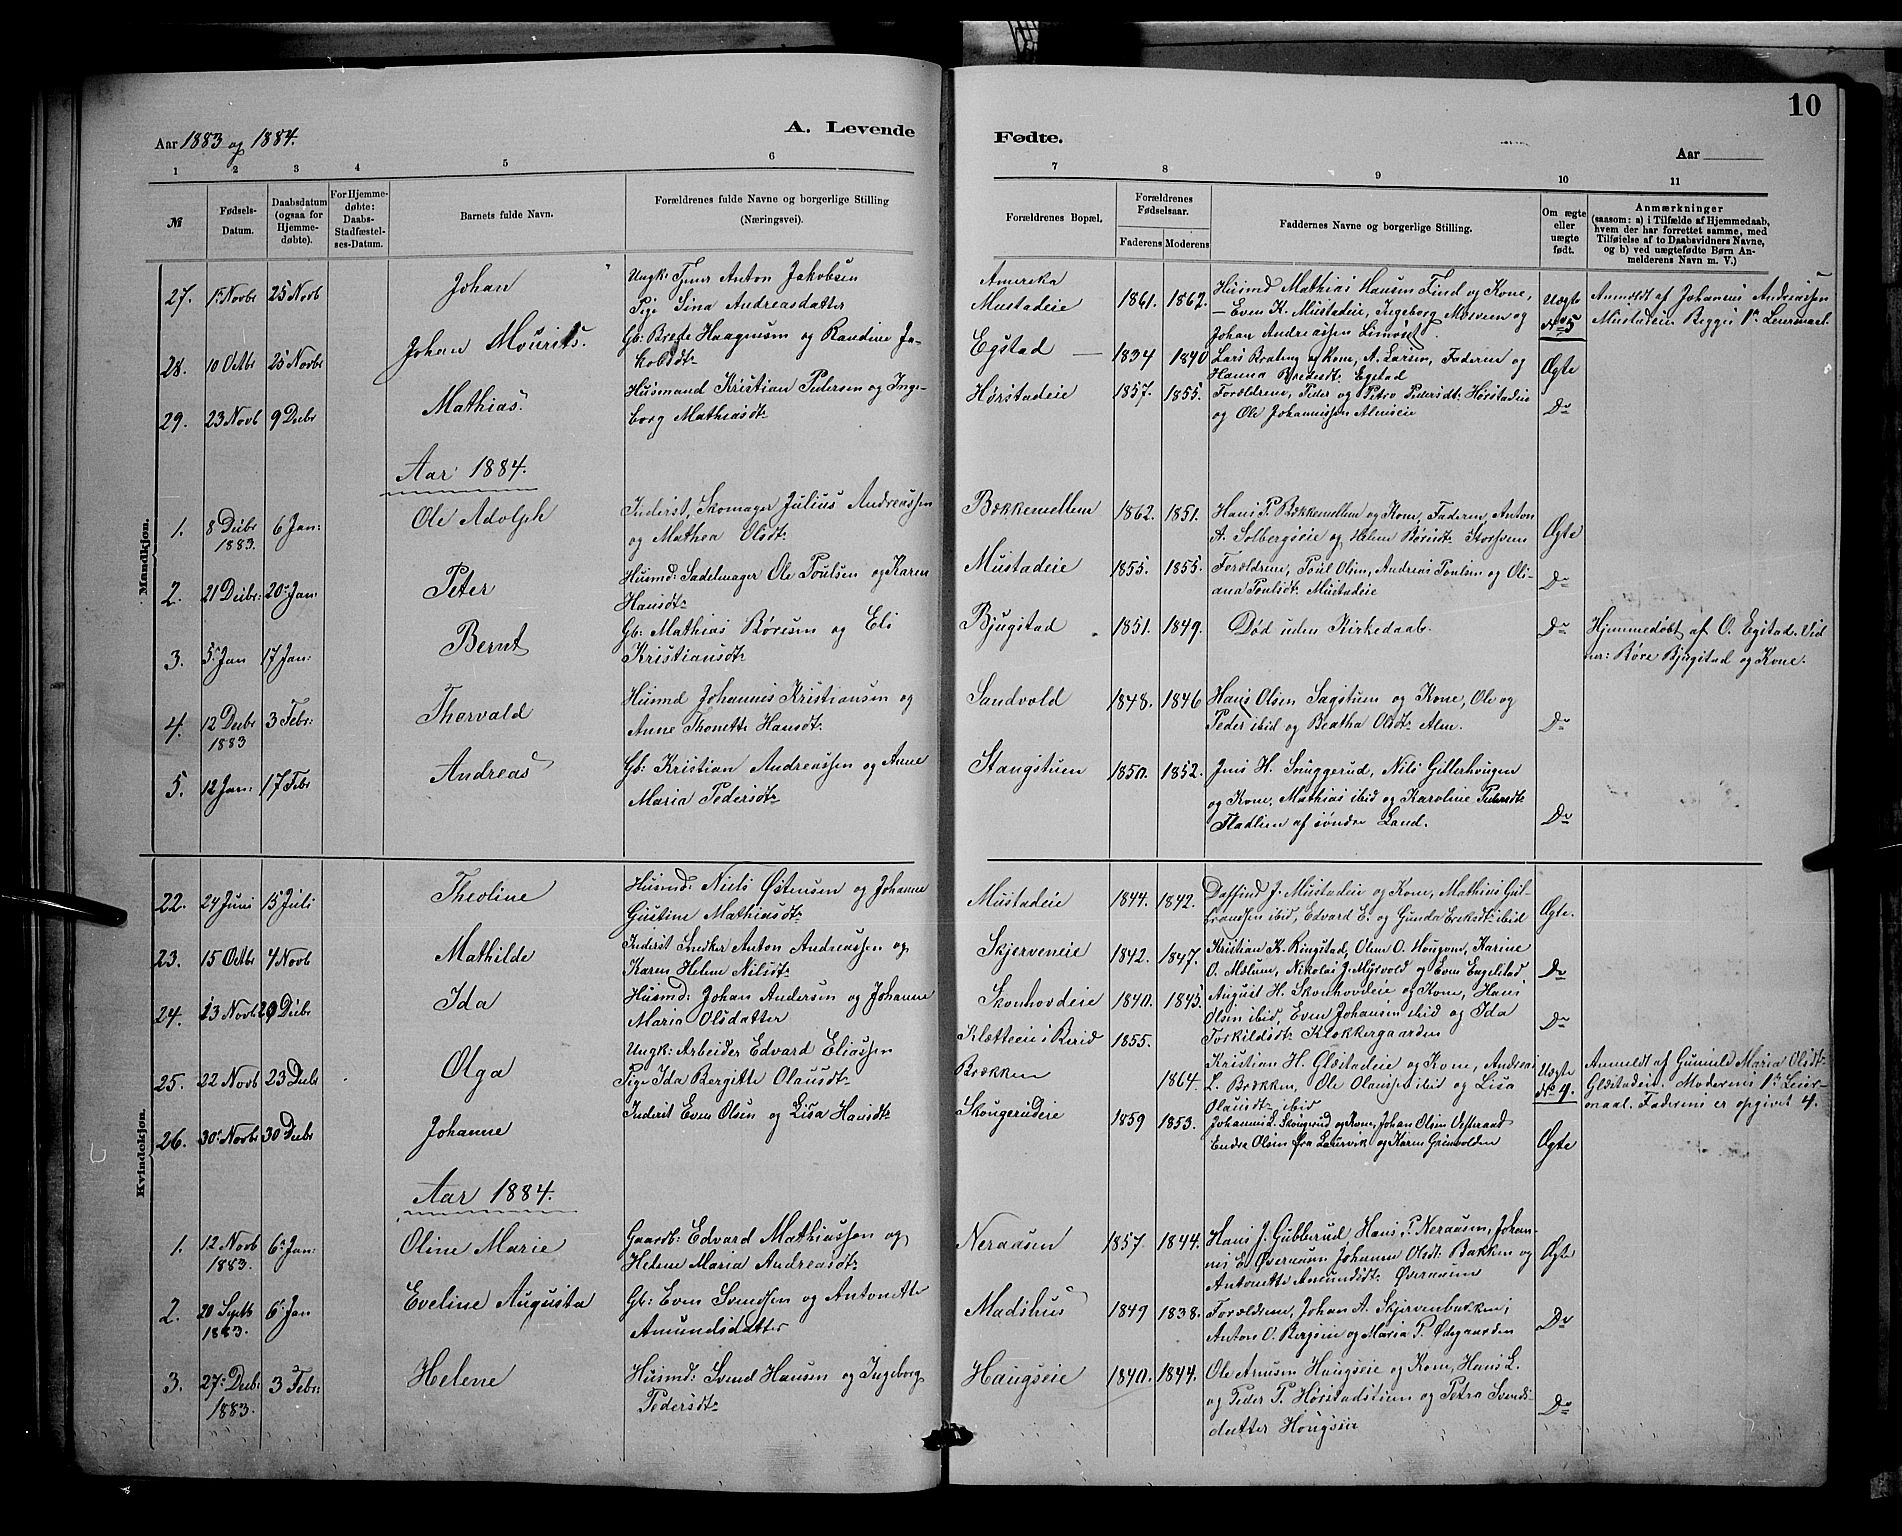 10
Aar 1883 og 1884.
A. Levende Fødte.
Aar
1 2 3 4 5 6 7 8 9 10 11
№
Fødsels-Datum.
Daabsdatum (ogsaa for Hjemmedøbte).
For Hjemmedøbte: Daabs-Stadfæstelses-Datum.
Barnets fulde Navn.
Forældrenes fulde Navne og borgerlige Stilling (Næringsvei).
Forældrenes Bopæl.
Forældrenes Fødselsaar.
Faderens Moderens
Faddernes Navne og borgerlige Stilling.
Om ægte eller uægte født.
Anmærkninger (saasom: a) i Tilfælde af Hjemmedaab, hvem der har forrettet samme, med Tilføielse af to Daabsvidners Navne, og b) ved uægtefødte Børn Anmelderens Navn m. V.)
Mandkjøn.
27. 1 Novbr 25 Novb Johan Ungk: Tjener Anton Jakobsen Amerika 1861. 1862. Husmd Mathias Hansen Find og Kone, Uægte Anmeldt af Johannes Andreassen
Pige Sina Andreasdatter Mustadeie Even K. Mustadeie, Ingeborg og No 5 Mustadeie
Johan Andreassen
28. 10 Octbr 25 Novbr Johan Mourits. Gb: Brede Haagensen og Randine Jakobsdt: Egstad 1834 1840 Lars Braten og Kone, A. Larsen, Faderen og Ægte
Hanna Bredesdt: Egstad
29. 23 Novb 9 Debr Mathias. Husmand Kristian Pedersen og Ingeborg Mathiasdt: Hørstadeie 1857. 1855. Forældrene, Peder og Petra Pedersdt: Hørstadeie Do
og Ole Johannessen Almseie
Aar 1884.
1. 8 Debr 1883. 6 Jan: Ole Adolph Inderst, Skomager Julius Andreassen Bækkemellem 1862. 1851. Hans P. Bækkemellem og Kone, Faderen, Anton Ægte
og Mathea Olsdt: A. Solbergseie og Helene
2. 21 Debr: 20 Jan: Peter Husmd: Sadelmager Ole Poulsen og Karen Mustadeie 1855. 1855. Forældrene, Poul Olsen, Andreas Poulsen og Oli- Do
Hansdt: ana Poulsdt: Mustadeie
3. 5 Jan 17 Jan: Bernt Gb: Mathias Børesen og Eli Bjugstad 1851. 1849. Død uden Kirkedaab. Do Hjemmedøbt af O. Egstad. Vid
Kristiansdt: ner: Børe Bjugstad og Kone.
4. 12 Debr 1883 3 Febr: Thorvald Husmd Johannes Kristiansen og Sandvold 1848. 1846 Hans Olsen Sagstuen og Kone, Ole og Do
Anne Thonette Hansdt: Peder ibid og Beatha Olsdt: Alm.
5. 12 Jan: 17 Febr Andreas Gb: Kristian Andreassen og Anne Stangstuen 1850. 1852. Jens H. Snuggerud, Nils Gillerhaugen
Maria Pedersdt: og Kone, Mathias ibid og Karoline Pedersdt:
Fladlien af søndre Land. Do
Kvindekjøn.
22. 24 Juni 15 Juli Theoline Husmd: Niels Østensen og Johanne Mustadeie 1844. 1842. Dagfind J. Mustadeie og Kone, Mathias Gul- Ægte.
Gustine Mathiasdt: brandsen ibid, Edvard E. og Gunda Eriksdt: ibid
23. 15 Octbr 4 Novb Mathilde Inderst Snedker Anton Andreassen og Skjerveneie 1842. 1847. Kristian K. Ringstad, Olem O. Hougom, Karine Do
Karen Helene Nilsdt: O. Mælum, Nikolai J. Myrvold og Even Engelstad
24. 13 Novb 29 Debr Ida Husmd: Johan Andersen og Johanne Skonhovdeie 1840. 1845. August H. Skonhovdeie og Kone, Hans Do
Maria Olsdatter Olsen ibid, Even Johansen ibid og Ida
Torkildsdt: Klokkergaarden
25. 22 Novb 23 Debr Olga Ungk: Arbeider Edvard Eliassen Klætteeie i Berid 1855. Kristian H. Glæstadeie og Kone, Andreas Uægte Anmeldt af Gunild Maria Olsdt:
Pige Ida Bergitte Olausdt: Brækken 1864. L. Brækken, Ole Olaussen ibid og Lisa No 4. Glæstadeie. Moderens 1ste Leier-
Olausdt: ibid maal. Faderens er opgivet 4.
26. 30 Novbr 30 Debr Johanne Inderst Even Olsen og Lisa Hansdt: Skougerudeie 1859 1853. Johannes L. Skougrud og Kone, Johan Olsen Østraad Ægte
Endre Olsen fra Laurvik og Karen Grimsolden
Aar 1884.
1. 12 Novb 1883. 6 Jan: Oline Marie Gaardb: Edvard Mathiassen og Neraasen 1857. 1844. Hans J. Gubberud, Hans P. Neraasen, Johan- Ægte
Helene Maria Andreasdt: nes E. Øveraasen Johanne Olsdt: Bakken og
Antonette Amundsdt: Øveraasen
2. 20 Septb 1883. 6 Jan Eveline Augusta Gb: Even Svendsen og Antonette Madshus 1849 1838. Forældrene, Johan A. Skjervenbakken, Do
Amundsdatter Anton O. Bergseie og Maria P. Ødegaarden
3. 27 Debr 1883. 3 Febr: Helene Husmd: Svend Hansen og Ingeborg Haugseie 1840. 1844. Ole Haugseie og Kone, Hans L.
Pedersdt: og Peder P. Hørstadstuen og Petra Svends- Do
datter Hougseie